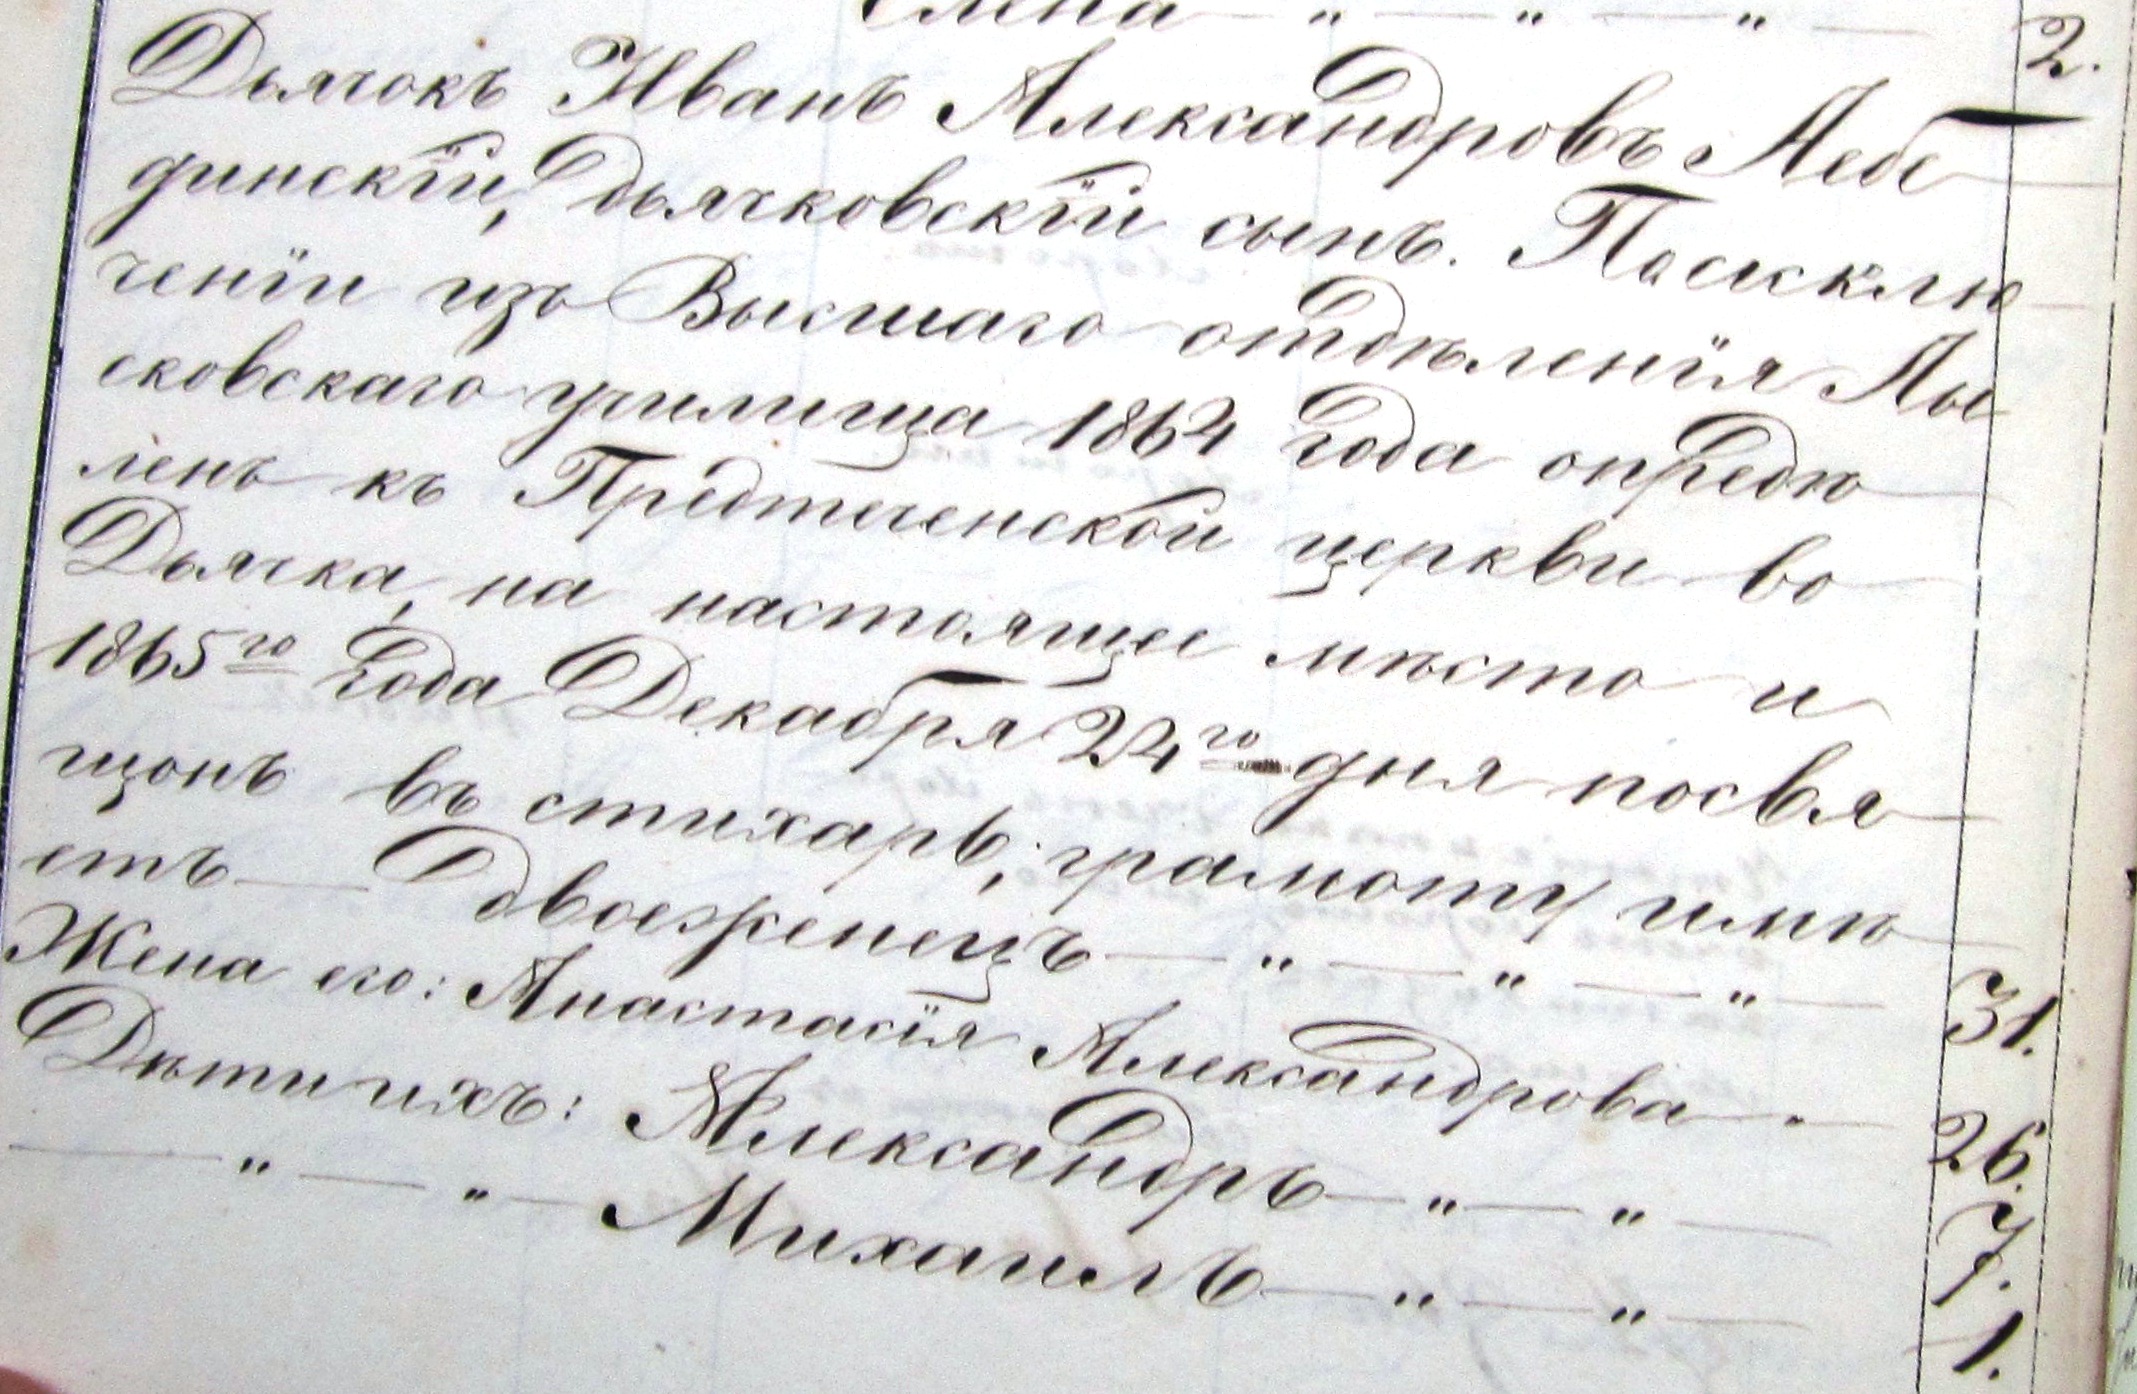 Елена — " — " — " — 2.
Дьячокъ Иванъ Александровъ Лебе
динскїй, дьячковскїй сынъ. По исклю
ченїи изъ Высшаго отдѣленїя Лы
сковскаго училища 1864 года опредѣ
ленъ къ Предтеченской церкви во
Дьячка, на настоящее мѣсто и
1865го года Декабря 24го дня посвя
щонъ въ стихарь; грамоту имѣ
етъ — Двоеженецъ — " — " — " — 31.
Жена его: Анастасїя Александрова - 26.
Дѣти ихъ: Александръ — " — " — 7.
— " — " — Михаилъ — " — " — 1.